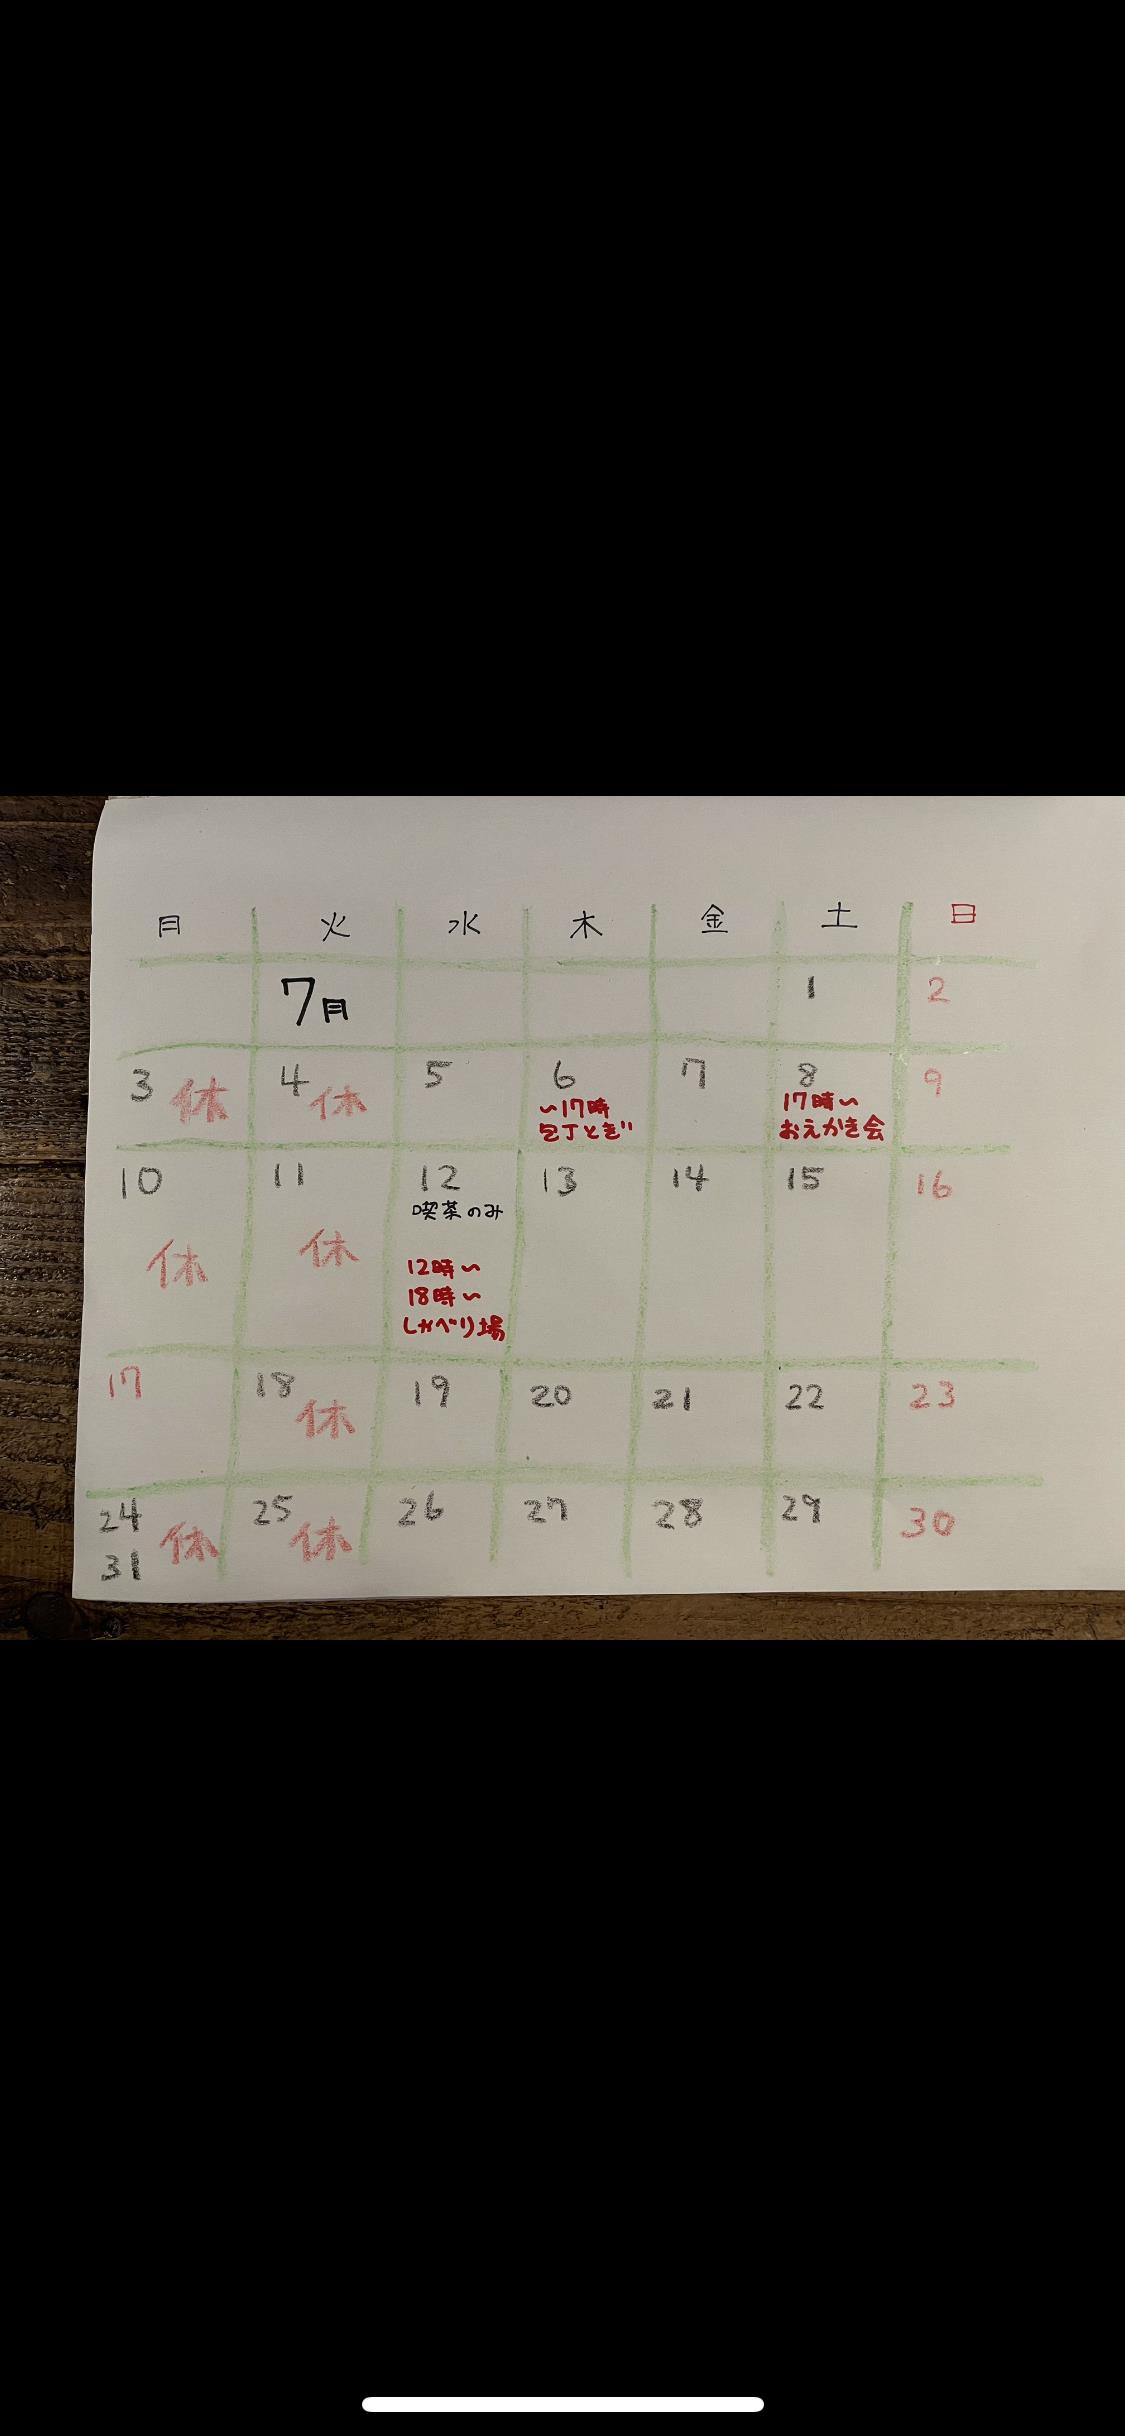 月 火 水 木 金 土 日
7月 1 2
3 休 4 休 5 6 7 8 9
〜17時
包丁とぎ
17時〜
おえかき会
10 11 12 13 14 15 16
喫茶のみ
休 休
12時〜
18時〜
しゃべり場
17 18 休 19 20 21 22 23
24 休 25 休 26 27 28 29 30
31